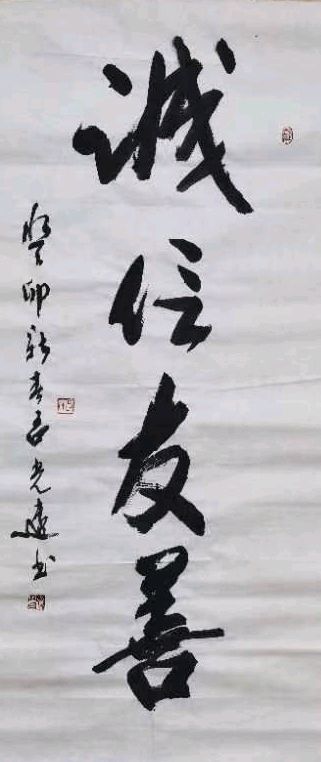 诚信友善
癸卯新春吕光远书